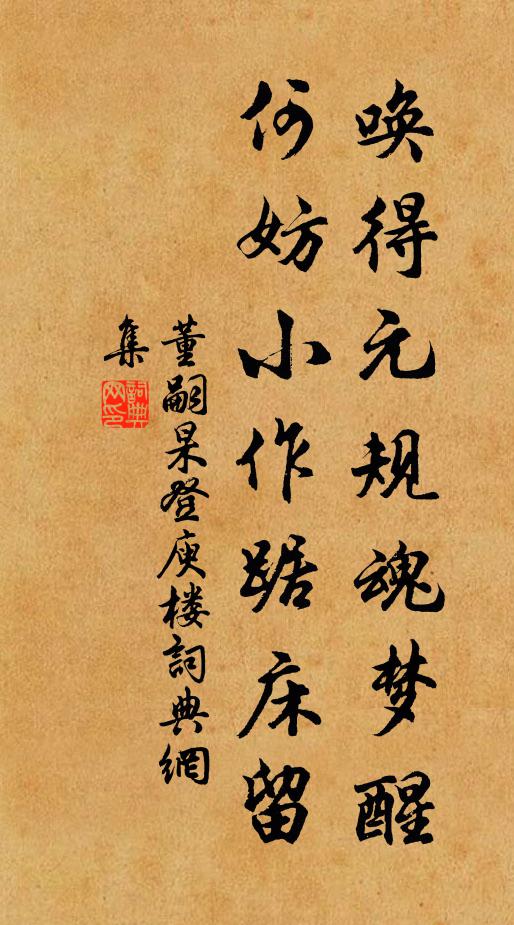 唤得元规魂梦醒
何妨小作踞床留
董嗣杲登庾楼詞典網
集
詞典
网印